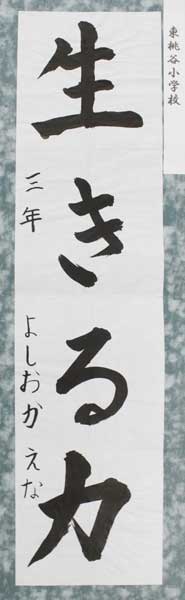 東桃谷小学校
生きる力
三年 よしおか えな